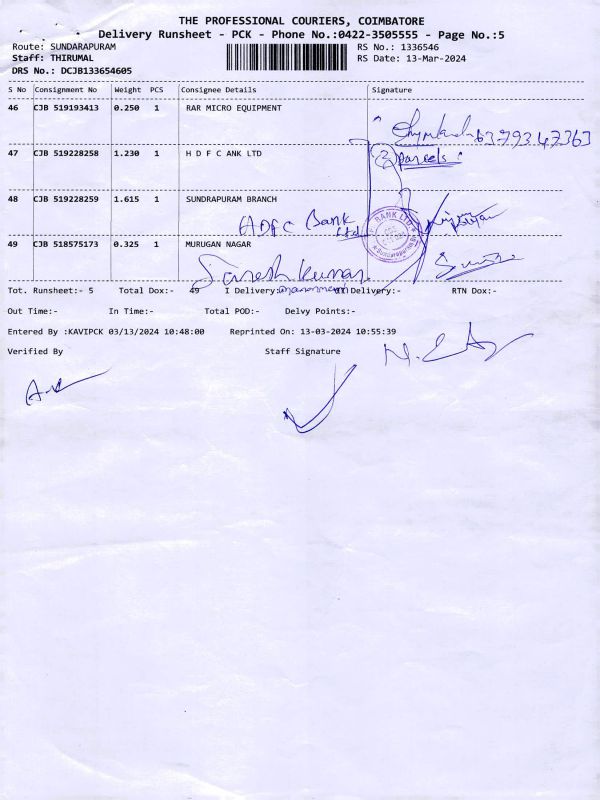 THE PROFESSIONAL COURIERS, COIMBATORE
Delivery Runsheet - PCK - Phone No.:0422-3505555 - Page No.:5
Route: SUNDARAPURAM RS No.: 1336546
Staff: THIRUMAL RS Date: 13-Mar-2024
DRS No.: DCJB133654605
S No Consignment No Weight PCS Consignee Details Signature
46 CJB 519193413 0.250 1 RAR MICRO EQUIPMENT
6379347363
47 CJB 519228258 1.230 1 H D F C ANK LTD
2 parcels
48 CJB 519228259 1.615 1 SUNDRAPURAM BRANCH
HDFC Bank Ltd
BANK LTD
49 CJB 518575173 0.325 1 MURUGAN NAGAR
Suresh kumar
Tot. Runsheet:- 5 Total Dox:- 49 I Delivery: Delivery:- RTN Dox:-
Out Time:- In Time:- Total POD:- Delvy Points:-
Entered By :KAVIPCK 03/13/2024 10:48:00 Reprinted On: 13-03-2024 10:55:39
Verified By Staff Signature